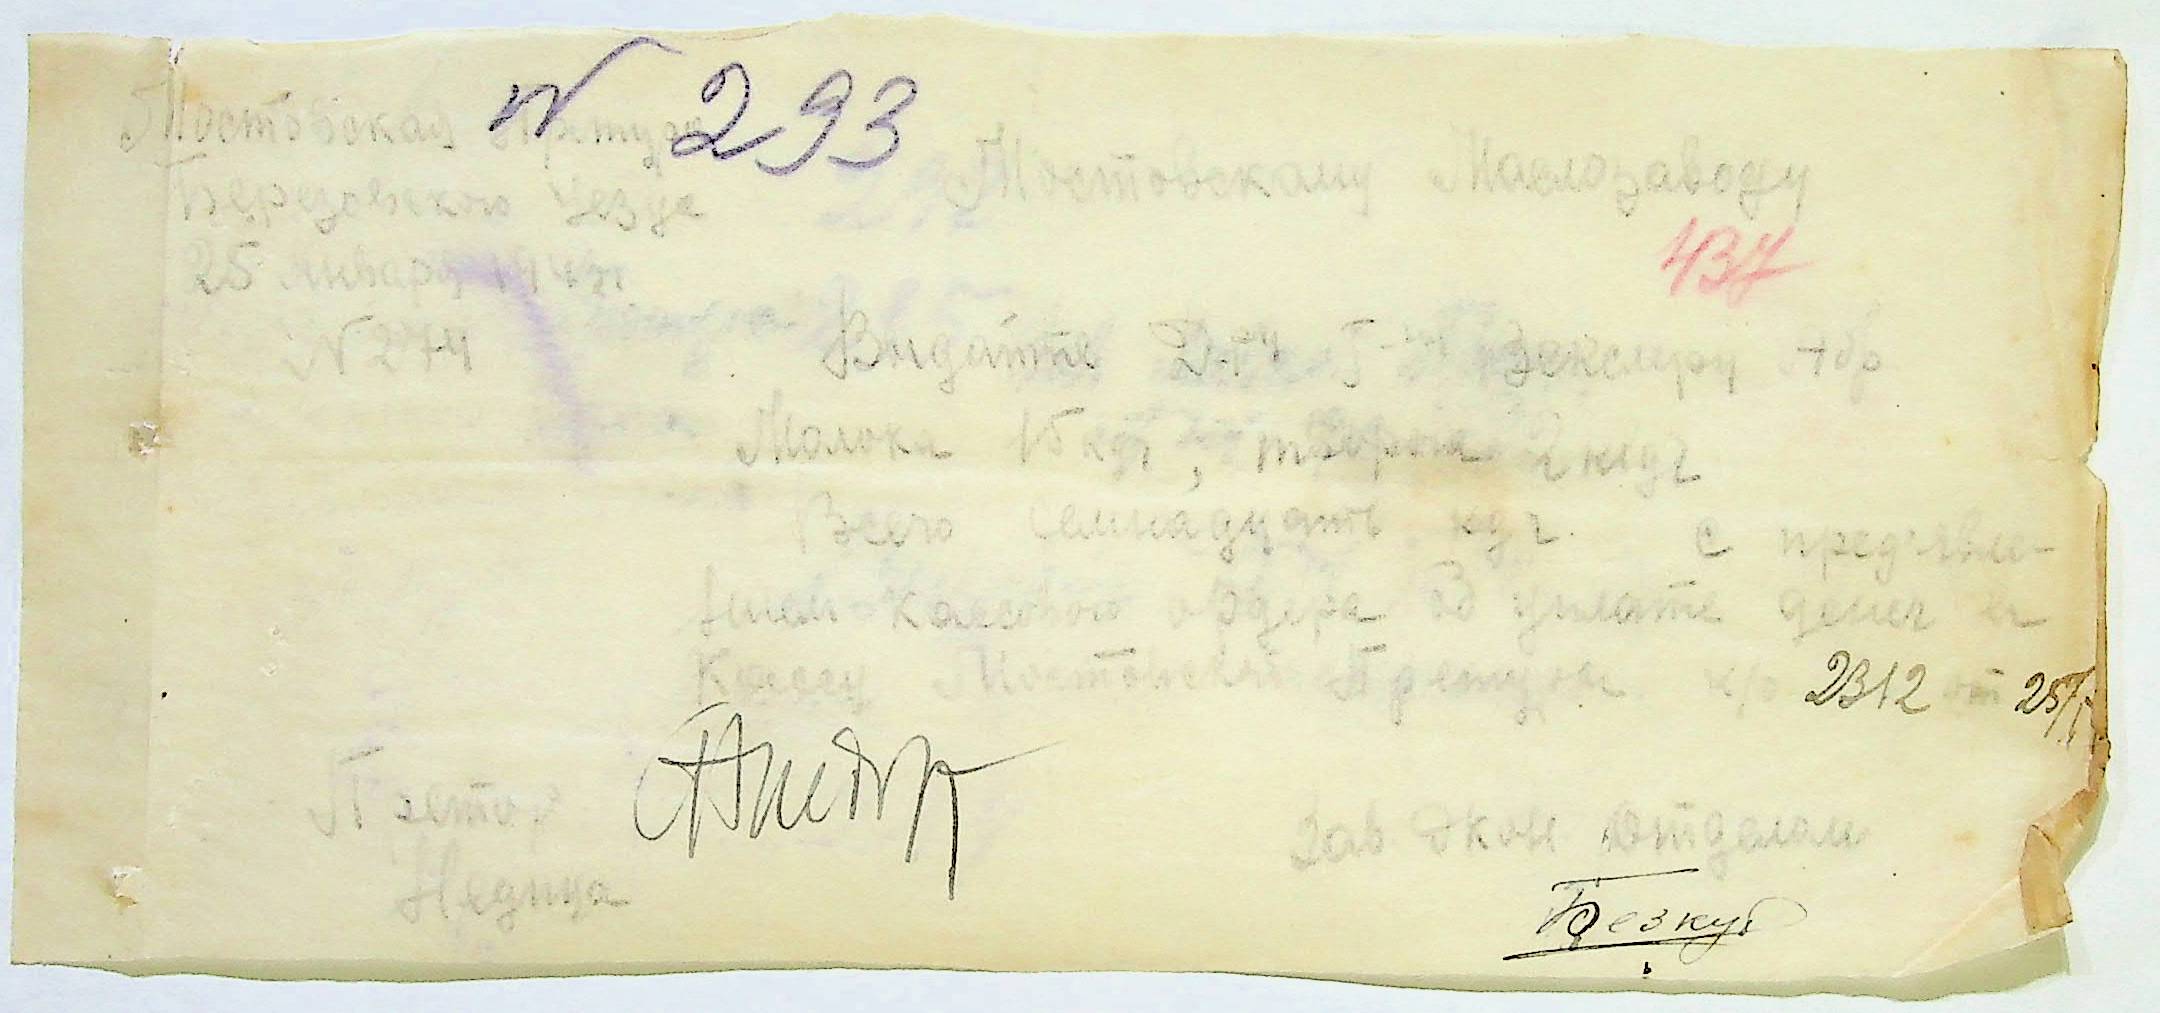 № 293
Мостовская Претура
Березовского Уезда
25 января 194
№ 274
Мостовскому Маслозаводу
437
Выдайте
Молока 15 кгр, творога 2 кгр
Всего Семнадцать кгр. с предъявле-
нием кассового ордера об уплате денег в
Кассу Мостовской Претуры к/о 2312 от 25/I
Претор
Недица
Зав Экон Отделом
Безкуб